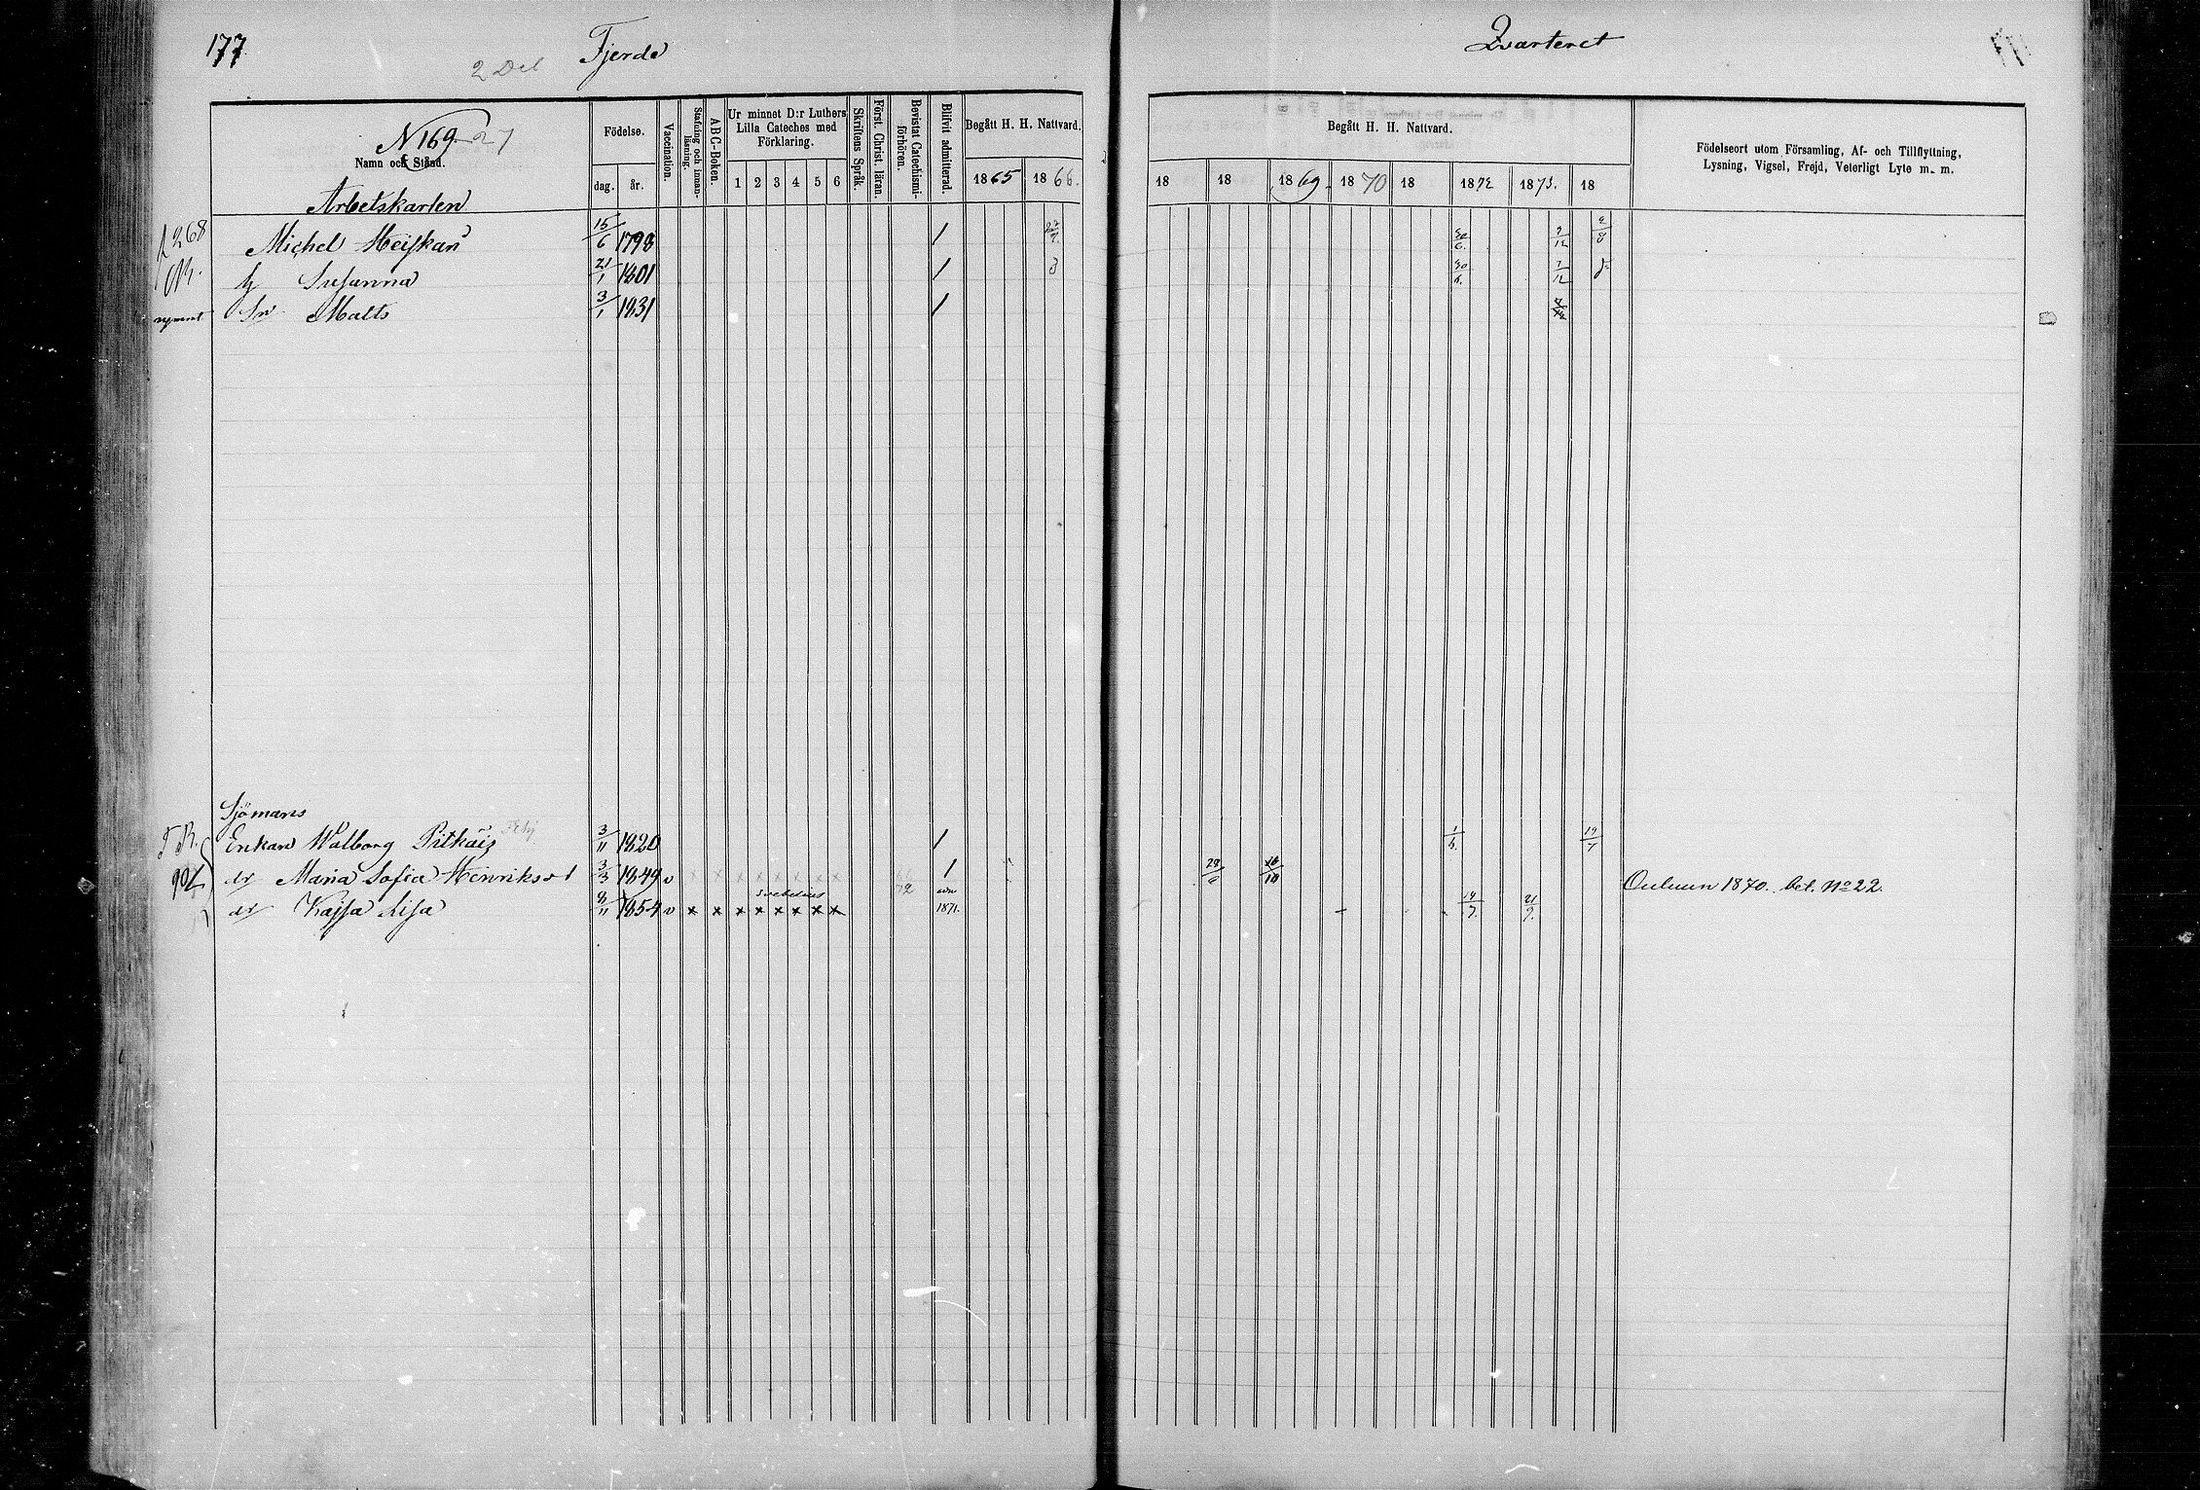 177
2 Del Fjerde
Qvarteret
N 169. 27
Namn och Stånd.
Födelse.
dag. år.
Vaccination.
Stafning och innan-läsning.
A B C-Boken.
Ur minnet D:r Luthers
Lilla Cateches med
Förklaring.
1 2 3 4 5 6
Skriftens Språk.
Först. Christ. läran.
Bevistat Catechismi-förhören.
Blifvit admitterad.
Begått H. H. Nattvard.
1865 1866.
Begått H. H. Nattvard.
18 18 1869. 1870 18 1872 1873. 18
Födelseort utom Församling, Af- och Tillflyttning,
Lysning, Vigsel, Frejd, Veterligt Lyte m. m.
Arbetskarlen
268 Michel Heiskan 15/6 1798 / 30/6. 7/12 2/8
h Susanna 21/1 1801 / 30/6. 7/12
Sn Matts 3/1 1831 /
Sjömans
Enkan Walborg Pitkäis 3/11 1820 / 19/7
dr Maria Sofia Henriksdt 3/3 1849 v x x x x x x x x / Ouluun 1870. bet. No 22.
dr Kajsa Lisa 1854 v x x x x x x x x 72 adm 1871. 14/7. 21/9.